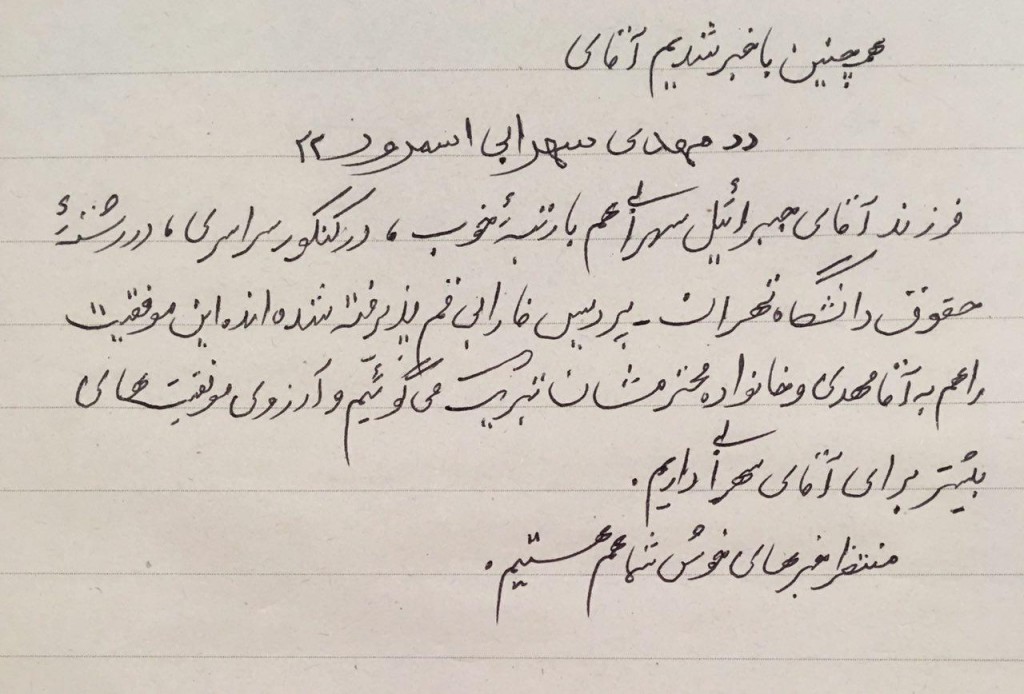 همچنین باخبر شدیم آقای
«مهدی سهرابی اسمرود»
فرزند آقای جبرائیل سهرابی هم با رتبهٔ خوب، در کنکور سراسری، در رشتهٔ
حقوق دانشگاه تهران - پردیس فارابی قم پذیرفته شده اند، این موفقیت
را هم به آقا مهدی و خانواده محترمشان تبریک می گوئیم و آرزوی موفقیت های
بیشتر برای آقای سهرابی داریم.
منتظر خبرهای خوش شما هم هستیم.